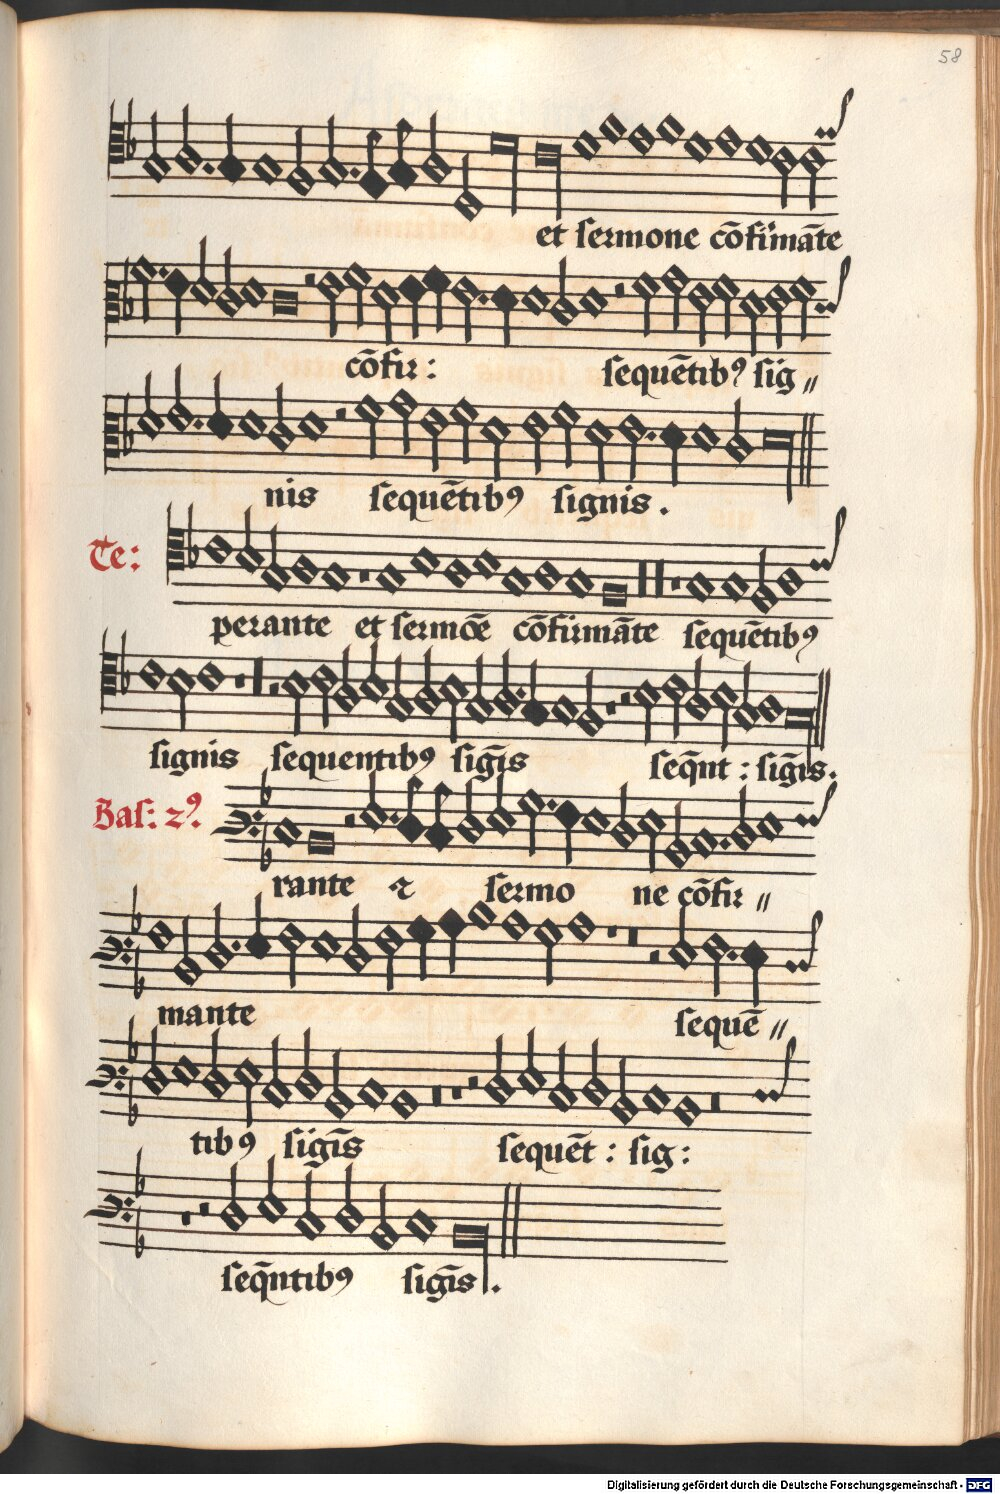 58
et sermone cōfirmāte
cōfir: sequētibꝰ sig〃
nis sequētibꝰ signis.
Te:
perante et sermōe cōfirmāte sequētibꝰ
signis sequentibꝰ sigīs seq̄nt: sigīs.
Bas: 2ꝰ.
rante ⁊ sermo ne cōfir〃
mante sequē〃
tibꝰ sigīs sequēt: sig:
seq̄ntibꝰ sigīs.
Digitalisierung gefördert durch die Deutsche Forschungsgemeinschaft - DFG